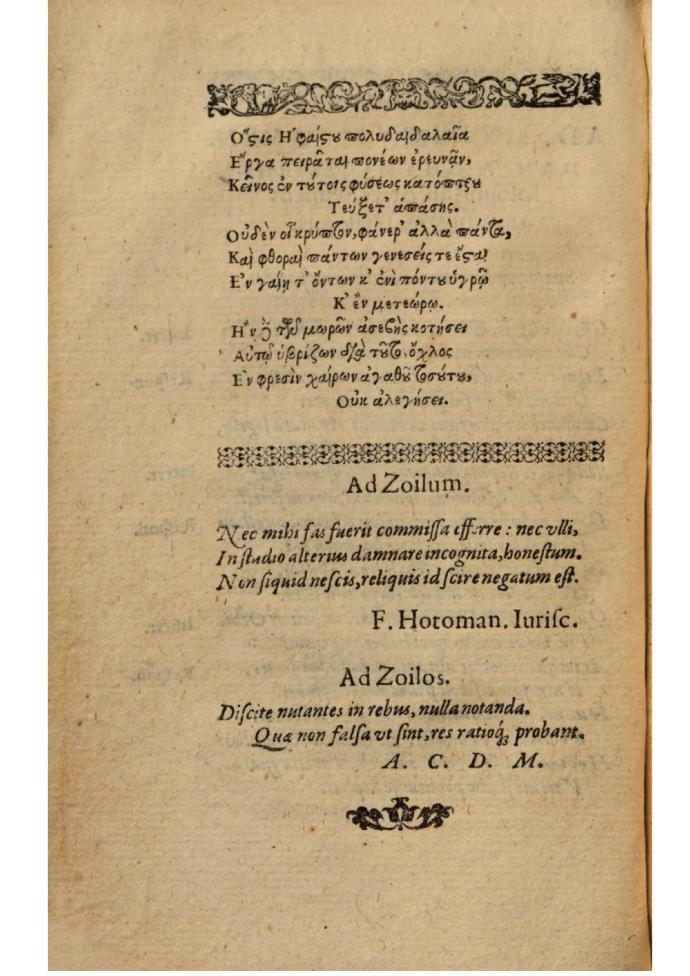 Ὅςις Ἡφαίςου πολυδαιδαλαῖα
Ἔργα πειρᾶται πονέων ἐρευνᾶν,
Κεῖνος ἐν τούτοις φύσεως κατόπτρου
Τεύξετ' ἁπάσης.
Οὐδὲν οἷ κρύπτον, φάνερ' ἀλλὰ πάντα,
Καὶ φθοραὶ πάντων γενεσείς τε ἔσαι
Ἐν γαίῃ τ' ὄντων κ' ἐνὶ πόντου ὑγρῷ
Κ' ἐν μετεώρῳ.
Ἢν δὲ τῶν μωρῶν ἀσεβὴς κοτήσει
Αὐτῷ ὑβρίζων διὰ τοῦτο, ὄχλος
Ἐν φρεσὶν χαίρων ἀγαθοῦ τοσούτου,
Οὐκ ἀλεγήσει.
Ad Zoilum.
Nec mihi fas fuerit commissa efferre : nec vlli,
In studio alterius damnare incognita, honestum.
Non siquid nescis, reliquis id scire negatum est.
F. Hotoman. Iurisc.
Ad Zoilos.
Discite nutantes in rebus, nulla notanda.
Quæ non falsa vt sint, res ratioq́; probant.
A. C. D. M.